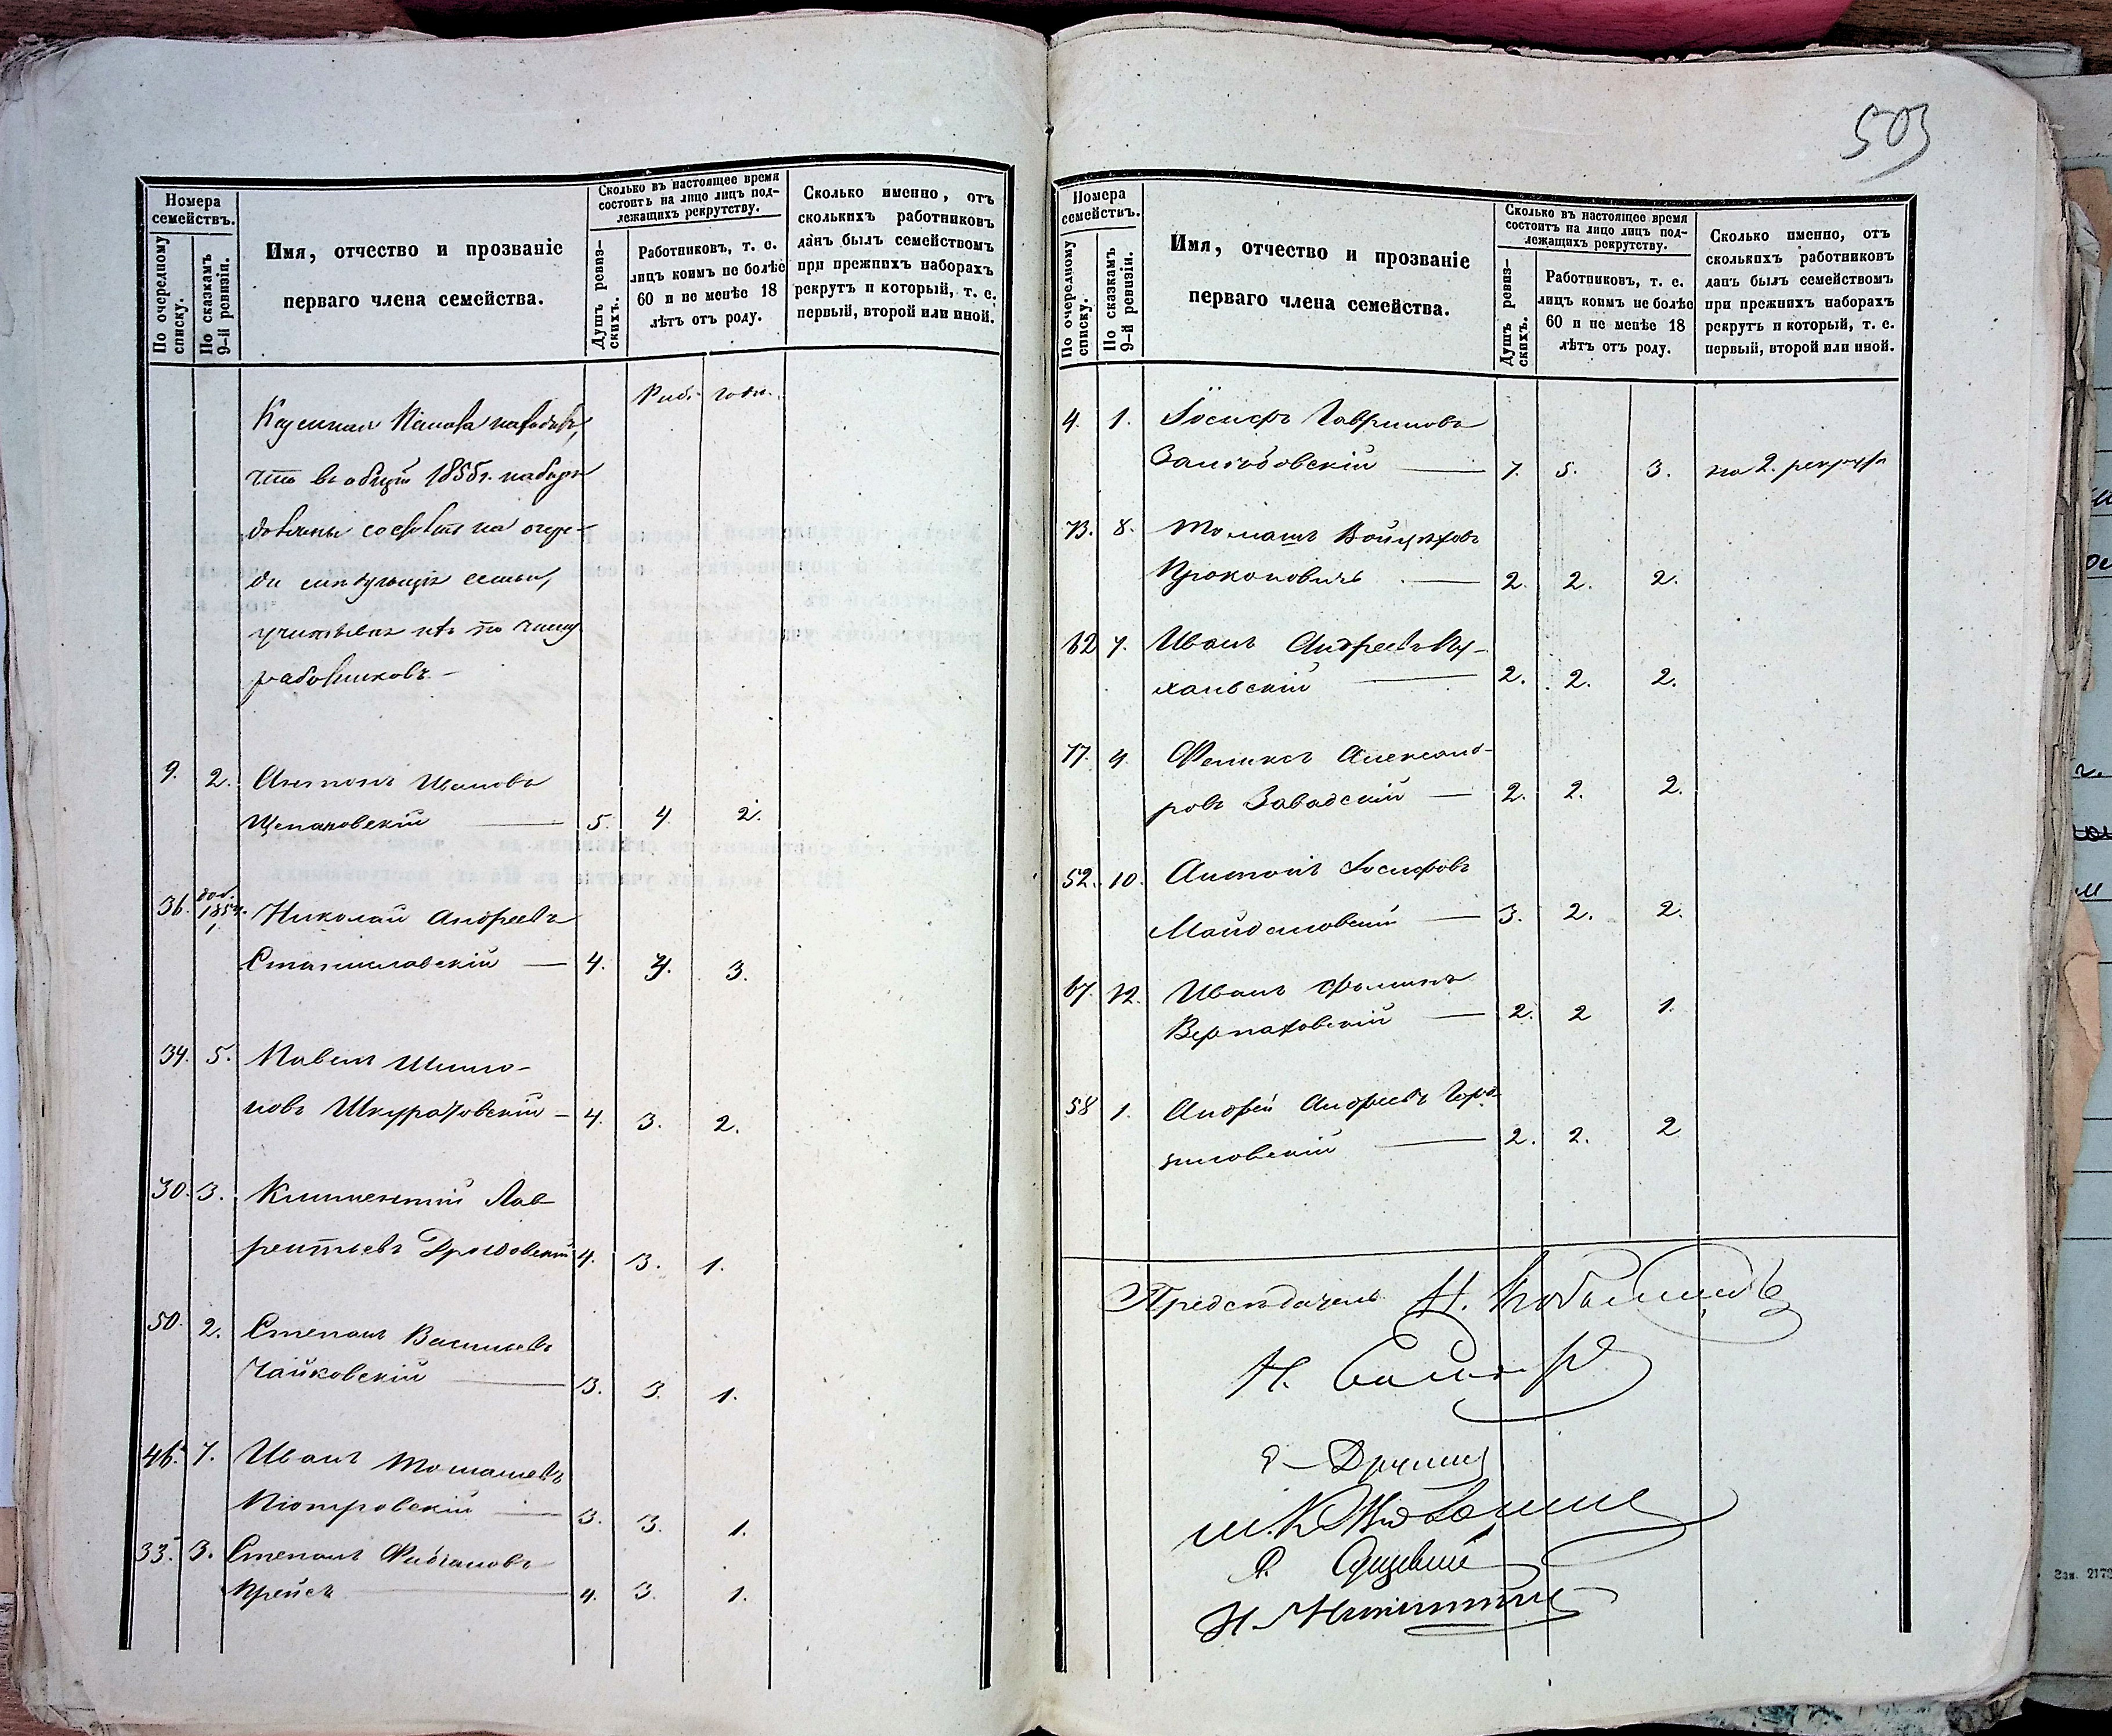 503
Номера
семействъ.
По очередному
списку.
По сказкамъ
9-й ревизіи.
Имя, отчество и прозваніе
перваго члена семейства.
Сколько въ настоящее время
состоитъ на лицо лицъ под-
лежащихъ рекрутству.
Душъ ревиз-
скихъ.
Работниковъ, т. е.
лицъ коимъ не болѣе
60 и не менѣе 18
лѣтъ отъ роду.
Сколько именно, отъ
сколькихъ работниковъ
данъ былъ семействомъ
при прежнихъ наборахъ
рекрутъ и который, т. е.
первый, второй или иной.
Казенная Палата
что въ общій 1855г. наборъ
должны состоять на очере-
ди слѣдующія семьи,
ихъ по числу
работниковъ.
9. 2. Антонъ Ивановъ
Щепановскій 5. 4 2.
36. 1854. 1 Николай Андреевъ
Станиславскій 4. 3.
34. 5. Павелъ
новъ Шкуратовскій 4. 3. 2.
30. 3. Климентій Лав
рентьевъ 4. 3. 1.
50. 2. Степанъ Васильевъ
Чайковскій 3. 3. 1.
46. 7. Иванъ Томашевъ
Піотровскій 3. 3. 1.
33. 3. Степанъ
Крейсъ 4. 3. 1.
Номера
семействъ.
По очередному
списку.
По сказкамъ
9-й ревизіи.
Имя, отчество и прозваніе
перваго члена семейства.
Сколько въ настоящее время
состоитъ на лицо лицъ под-
лежащихъ рекрутству.
Душъ ревиз-
скихъ.
Работниковъ, т. е.
лицъ коимъ не болѣе
60 и не менѣе 18
лѣтъ отъ роду.
Сколько именно, отъ
сколькихъ работниковъ
данъ былъ семействомъ
при прежнихъ наборахъ
рекрутъ и который, т. е.
первый, второй или иной.
4. 1. Іосифъ Гавриловъ
7. 5. 3. на 2. рекрут
73. 8. Томашъ Войцѣховъ
Прокоповичъ 2. 2. 2.
62 7. Иванъ Андреевъ Пу-
хальскій 2. 2. 2.
77. 9. Феликсъ Александ-
ровъ Завадскій 2. 2. 2.
52. 10. Антонъ Іосифовъ
Майдановскій 3. 2. 2.
67. 12. Иванъ Фоминъ
Верпаховскій 2. 2 1.
58 1. Андрей Андреевъ
2. 2. 2
Предсѣдатель Н.
Н.